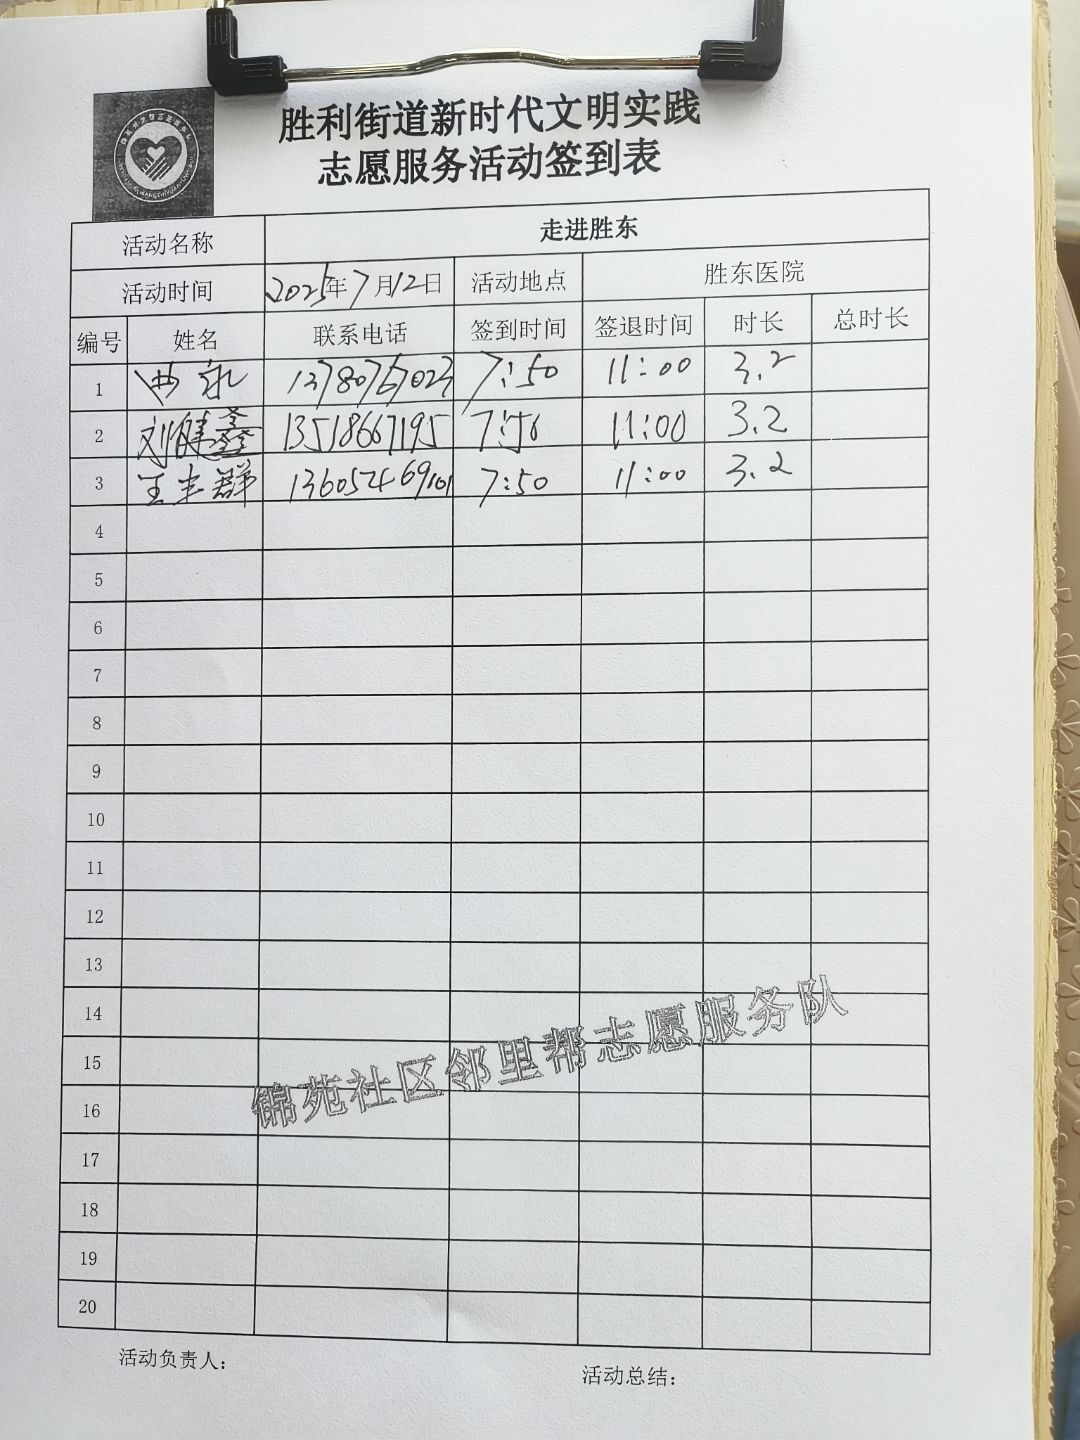 胜利街道新时代文明实践
志愿服务活动签到表
活动名称 走进胜东
活动时间 2025年7月12日 活动地点 胜东医院
编号 姓名 联系电话 签到时间 签退时间 时长 总时长
1 7:50 11:00 3.2
2 刘健鑫 13518667195 7:50 11:00 3.2
3 王丰群 7:50 11:00 3.2
4
5
6
7
8
9
10
11
12
13
14
15
16
17
18
19
20
锦苑社区邻里帮志愿服务队
活动负责人： 活动总结：